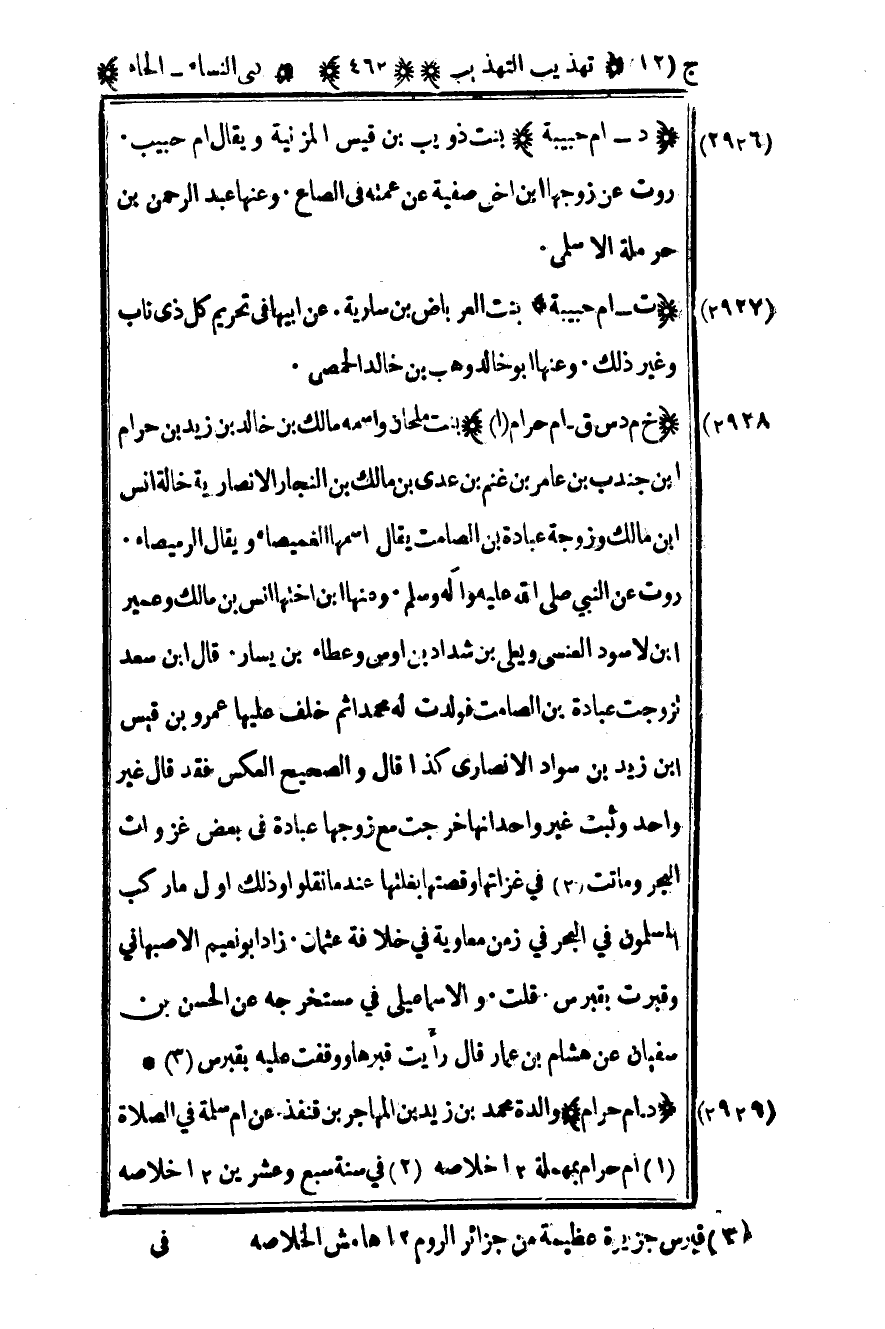 ج (١٢) ﴿ تهذيب التهذيب ﴾ ﴿ ٤٦٢ ﴾ ﴿ كنى النساء ـ الحاء ﴾
(٢٩٢٦) ﴿ د ـ ام حبيبة ﴾ بنت ذويب بن قيس المزنية ويقال ام حبيب٠
روت عن زوجها ابن اخى صفية عن عمته فى الصاع٠ وعنها عبد الرحمن بن
حرملة الاسلمى٠
(٢٩٢٧) ﴿ ت ـ ام حبيبة ﴾ بنت العرباض بن سارية٠ عن ابيها فى تحريم كل ذى ناب
وغير ذلك٠ وعنها ابو خالد وهب بن خالد الحمصى٠
(٢٩٢٨ ﴿ خ م د س ق ـ ام حرام (١) ﴾ بنت ملحان واسمه مالك بن خالد بن زيد بن حرام
ابن جندب بن عامر بن غنم بن عدى بن مالك بن النجار الانصارية خالة انس
ابن مالك وزوجة عبادة بن الصامت يقال اسمها الغميصاء ويقال الرميصاء٠
روت عن النبي صلى الله عليه وآله وسلم٠ وعنها ابن اختها انس بن مالك وعمير
ابن لاسود العنسى ويعلى بن شداد بن اوس وعطاء بن يسار٠ قال ابن سعد
تزوجت عبادة بن الصامت فولدت له محمدا ثم خلف عليها عمرو بن قيس
ابن زيد بن سواد الانصارى كذا قال والصحيح العكس فقد قال غير
واحد وثبت غير واحد انها خرجت مع زوجها عبادة فى بعض غزوات
البحر وماتت (٢) في غزاتها وقصتها بغلتها عند ما نقلوا وذلك اول ما ركب
المسلمون في البحر في زمن معاوية في خلافة عثمان٠ زاد ابو نعيم الاصبهاني
وقبرت بقبرس٠ قلت٠ والاسماعيلى في مستخرجه عن الحسن بن
سفيان عن هشام بن عمار قال رأيت قبرها ووقفت عليه بقبرس (٣) *
(٢٩٢٩) ﴿ د ـ ام حرام ﴾ والدة محمد بن زيد بن المهاجر بن قنفذ٠ عن ام سلمة في الصلاة
(١) ام حرام بمهملة ١٢ خلاصه (٢) في سنة سبع وعشرين ١٢ خلاصه
(٣) قبرس جزيرة عظيمة من جزائر الروم ١٢ هامش الخلاصه
فى